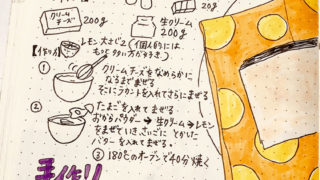 クリーム
チーズ
200g
生クリーム
200g
【作り方】
レモン 大さじ2 (個人的には
もっと多い方が好き)
①
クリームチーズをなめらかに
なるまでまぜる
そこにラカントを入れてさらにまぜる
②
たまごを入れてまぜる
おからパウダー → 生クリーム → レモン
をまぜていきさいごにとかした
バターを入れてまぜる。
③ 180℃のオーブンで40分焼く
手作り